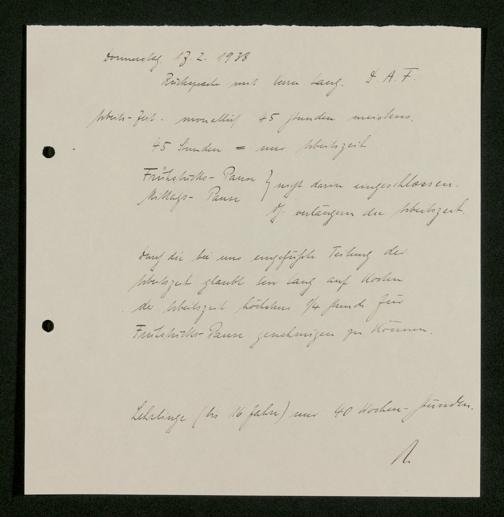 Donnerstag 17.2.1938
Rücksprache mit Herrn Lang. D.A.F.
Arbeits-Zeit. monatlich 45 Stunden meistens.
45 Stunden = nur Arbeitszeit
Frühstücks-Pause } nicht darin eingeschlossen.
Mittags-Pause
verlängern die Arbeitszeit.
Durch die bei uns eingeführte Teilung der
Arbeitszeit glaubt Herr Lang auf Kosten
der Arbeitszeit höchstens 1/4 Stunde für
Frühstücks-Pause genehmigen zu können.
Lehrlinge (bis 16 Jahre) nur 40 Wochen-Stunden.